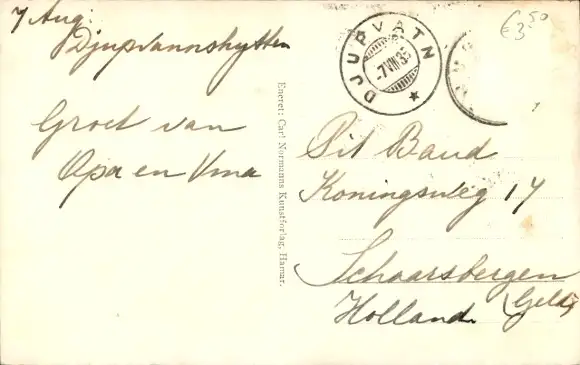 7 Aug:
Djupvannshytten
Groet van
Opa en Oma
Eneret: Carl Normanns Kunstforlag, Hamar.
DJUPVATN
-7 VIII 35
€ 3,50
Pit Baud
Koningsweg 17
Schaarsbergen
(Geld)
Holland